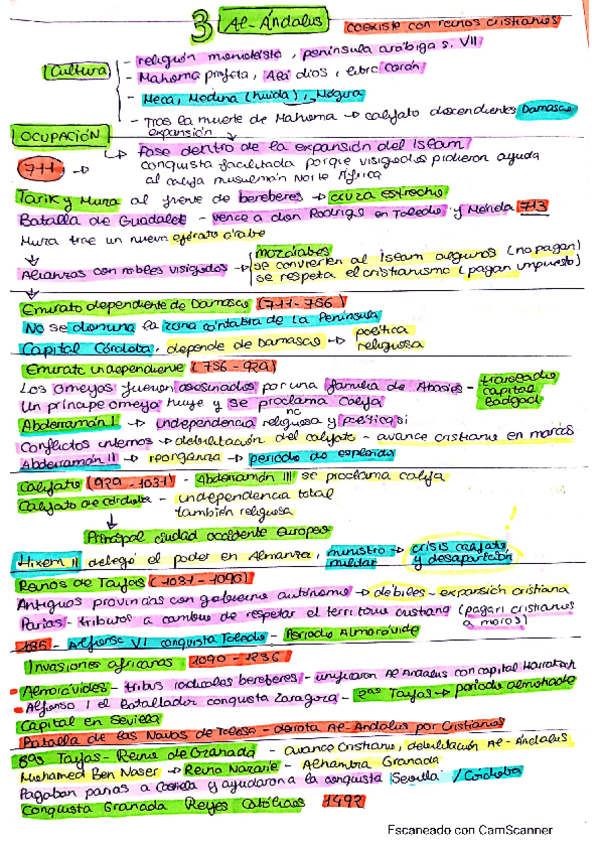 3 Al-Ándalus coexiste con reinos cristianos
Cultura
- religión monoteísta, península arábiga s. VII
- Mahoma profeta, Alá dios, libro Corán
- Meca, Medina (huida), Hégira
- Tras la muerte de Mahoma → califato descendientes Damasco
expansión
OCUPACIÓN
↳ fase dentro de la expansión del Islam
711 → conquista facilitada porque visigodos pidieron ayuda
al califa musulmán Norte África
Tarik y Muza al frente de bereberes → cruza estrecho
Batalla de Guadalete - vence a don Rodrigo en Toledo y Mérida 713
Muza trae un nuevo ejército árabe
↓
Alianzas con nobles visigodos → mozárabes
se convierten al Islam algunos (no pagan)
se respeta el cristianismo (pagan impuesto)
↓
Emirato dependiente de Damasco (711-756)
No se domina la zona cántabra de la Península
Capital Córdoba, depende de Damasco → política
religiosa
Emirato independiente (756-929)
Los omeyas fueron asesinados por una familia de Abasíes - traslado
capital
Badgad
Un príncipe omeya huye y se proclama califa
Abderramán I → independencia religiosa y política si
no
Conflictos internos → debilitación del califato - avance cristiano en marcas
Abderramán II → reorganiza → periodo de esplendor
Califato (929-1031) - Abderramán III se proclama califa
Califato de Córdoba - independencia total
también religiosa
↓
Principal ciudad occidente Europeo
Hixem II delegó el poder en Almanza, ministro militar → crisis califato
y desaparición
Reinos de Taifas (1031-1090)
Antiguas provincias con gobierno autónomo → débiles - expansión cristiana
Parias - tributos a cambio de respetar el territorio cristiano (pagan cristianos
a moros)
Alfonso VI conquista Toledo - Periodo Almorávide
Invasiones africanas 1090-1236
Almorávides - tribus radicales bereberes - unificaron Al Andalus con capital Marrakech
Alfonso I el Batallador conquista Zaragoza - 2ªs Taifas → periodo almohade
Capital en Sevilla
Batalla de las Navas de Tolosa - derrota Al-Ándalus por Cristianos
Taifas - Reino de Granada - avance Cristiano, debilitación Al-Ándalus
Mohamed Ben Naser → Reino Nazarie - Alhambra Granada
Pagaban parias a Castilla y ayudaron a la conquista Sevilla / Córdoba
Conquista Granada Reyes Católicos 1492
Escaneado con CamScanner